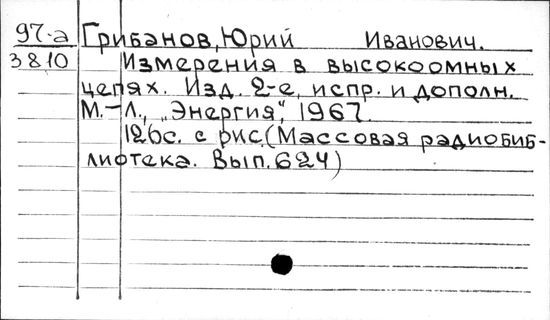 97-а Грибанов, Юрий Иванович.
3810 Измерения в высокоомных
цепях. Изд. 2-е, испр. и дополн.
М.-Л., „Энергия", 1967.
126с. с рис. (Массовая радиобиб-
лиотека. Вып. 624)